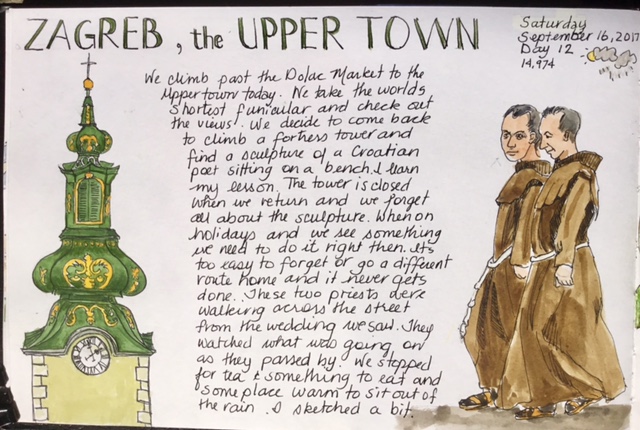 ZAGREB, the UPPER TOWN
Saturday
September 16, 2017
Day 12
14,974
We climb past the Dolac Market to the
Upper town today. We take the worlds
shortest funicular and check out
the views. We decide to come back
to climb a fortress tower and
find a sculpture of a Croatian
poet sitting on a bench. I learn
my lesson. The tower is closed
when we return and we forget
all about the sculpture. When on
holidays and we see something
we need to do it right then. Its
too easy to forget or go a different
route home and it never gets
done. These two priests were
walking across the street
from the wedding we saw. They
watched what was going on
as they passed by. We stopped
for tea & something to eat and
some place warm to sit out of
the rain. I sketched a bit.